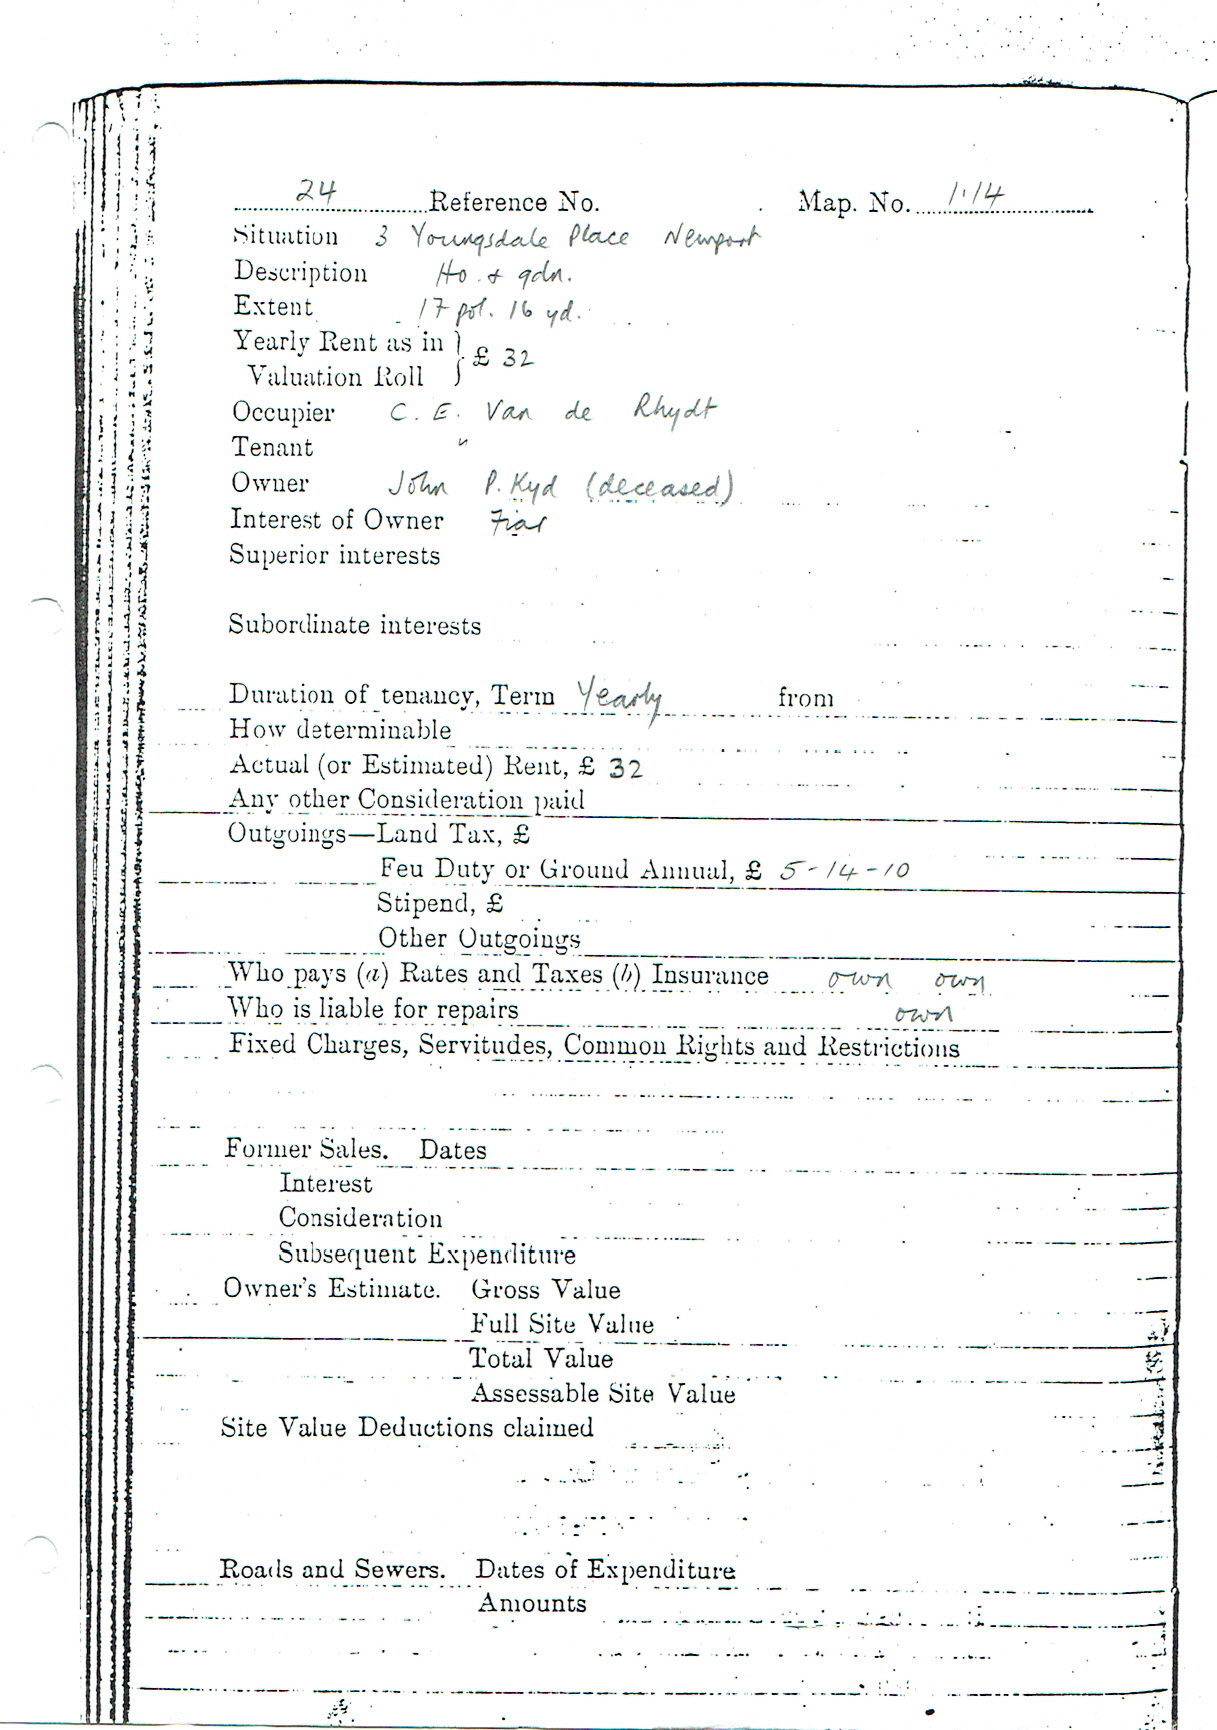 24 Reference No. Map. No. 1.14
Situation 3 Youngsdale Place Newport
Description Ho. & gdn.
Extent 17 pol. 16 yd.
Yearly Rent as in
Valuation Roll } £ 32
Occupier C. E. Van de Rhydt
Tenant "
Owner John P. Kyd (deceased)
Interest of Owner Fiar
Superior interests
Subordinate interests
Duration of tenancy, Term Yearly from
How determinable
Actual (or Estimated) Rent, £ 32
Any other Consideration paid
Outgoings—Land Tax, £
Feu Duty or Ground Annual, £ 5-14-10
Stipend, £
Other Outgoings
Who pays (a) Rates and Taxes (b) Insurance own own
Who is liable for repairs own
Fixed Charges, Servitudes, Common Rights and Restrictions
Former Sales. Dates
Interest
Consideration
Subsequent Expenditure
Owner's Estimate. Gross Value
Full Site Value
Total Value
Assessable Site Value
Site Value Deductions claimed
Roads and Sewers. Dates of Expenditure
Amounts